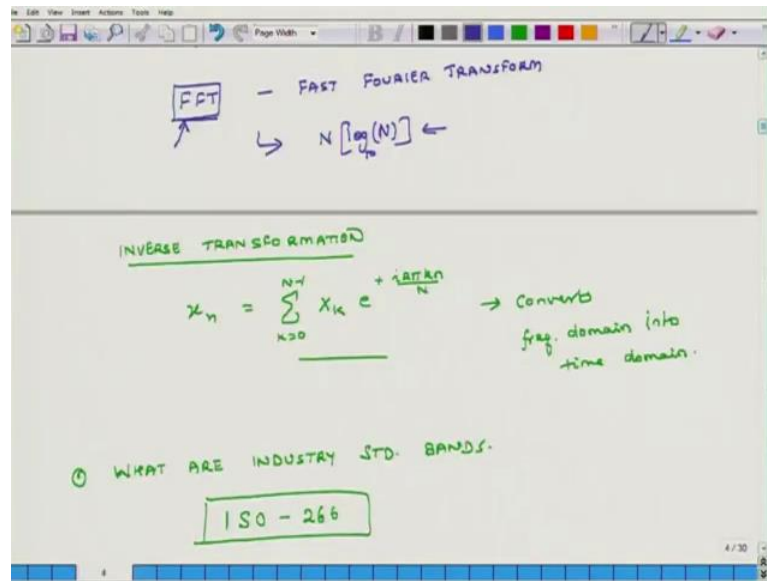 Edit View Insert Actions Tools Help
Page Width
FFT - FAST FOURIER TRANSFORM
↳ N [log₁₀(N)] ←
INVERSE TRANSFORMATION
xₙ = Σ Xₖ e → Converts
N-1
k=0
+ i2πkn
N
freq. domain into
time domain.
① WHAT ARE INDUSTRY STD. BANDS.
ISO - 266
4 / 30
4